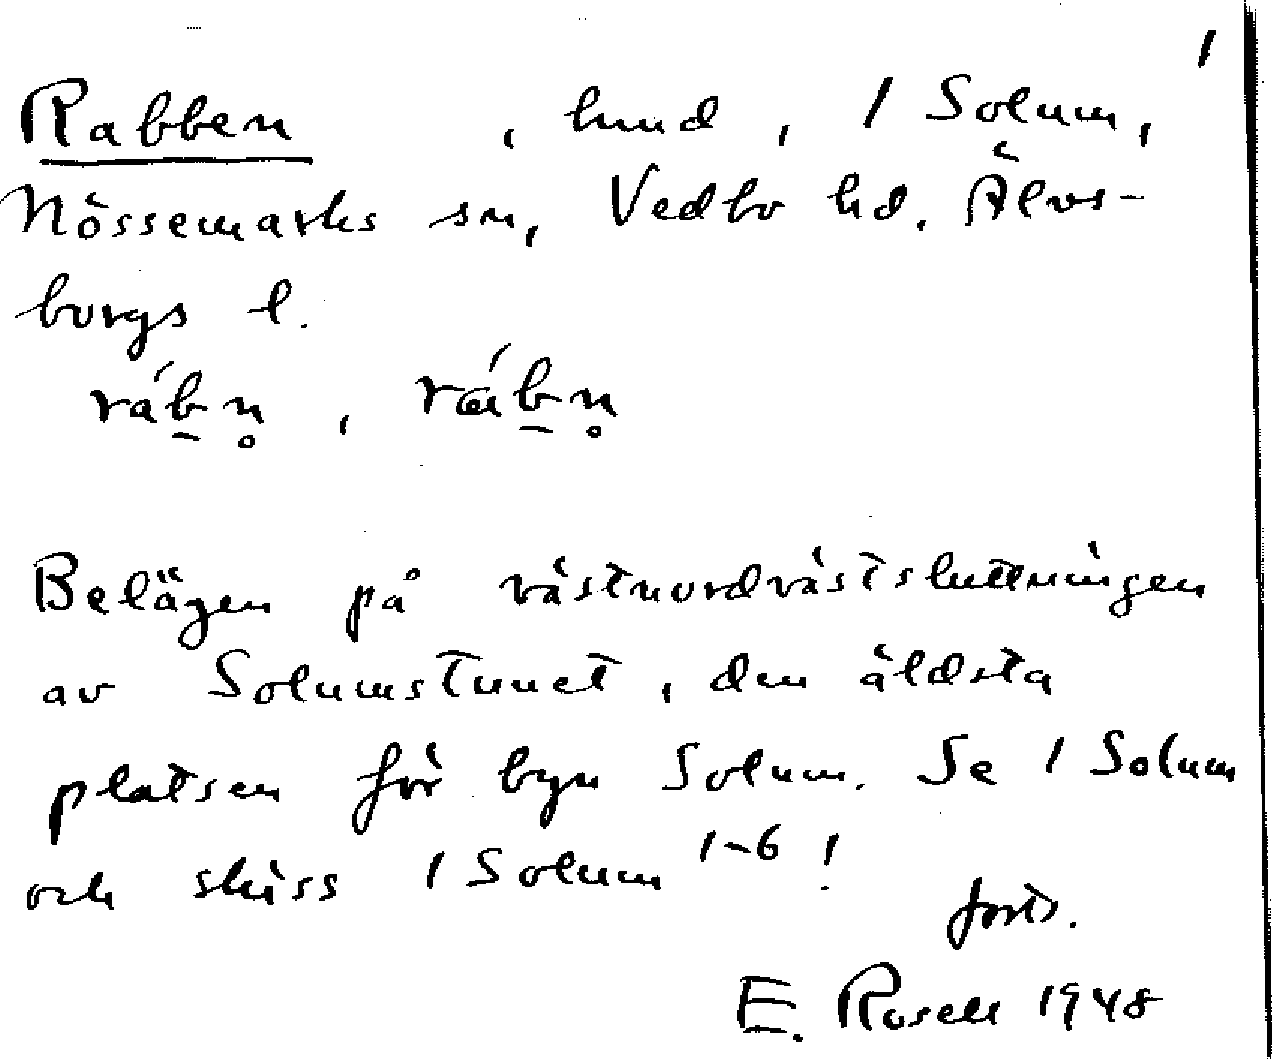 1
Rabben , lund, 1 Solum,
Nössemarks sn, Vedbo hd. Älvs-
borgs l.
ráb̲n̥, rǽb̲n̥
Belägen på västnordvästsluttningen
av Solumstunet, den äldsta
platsen för byn Solum. Se 1 Solum
och skiss 1 Solum 1-6!
forts.
E. Rosell 1948